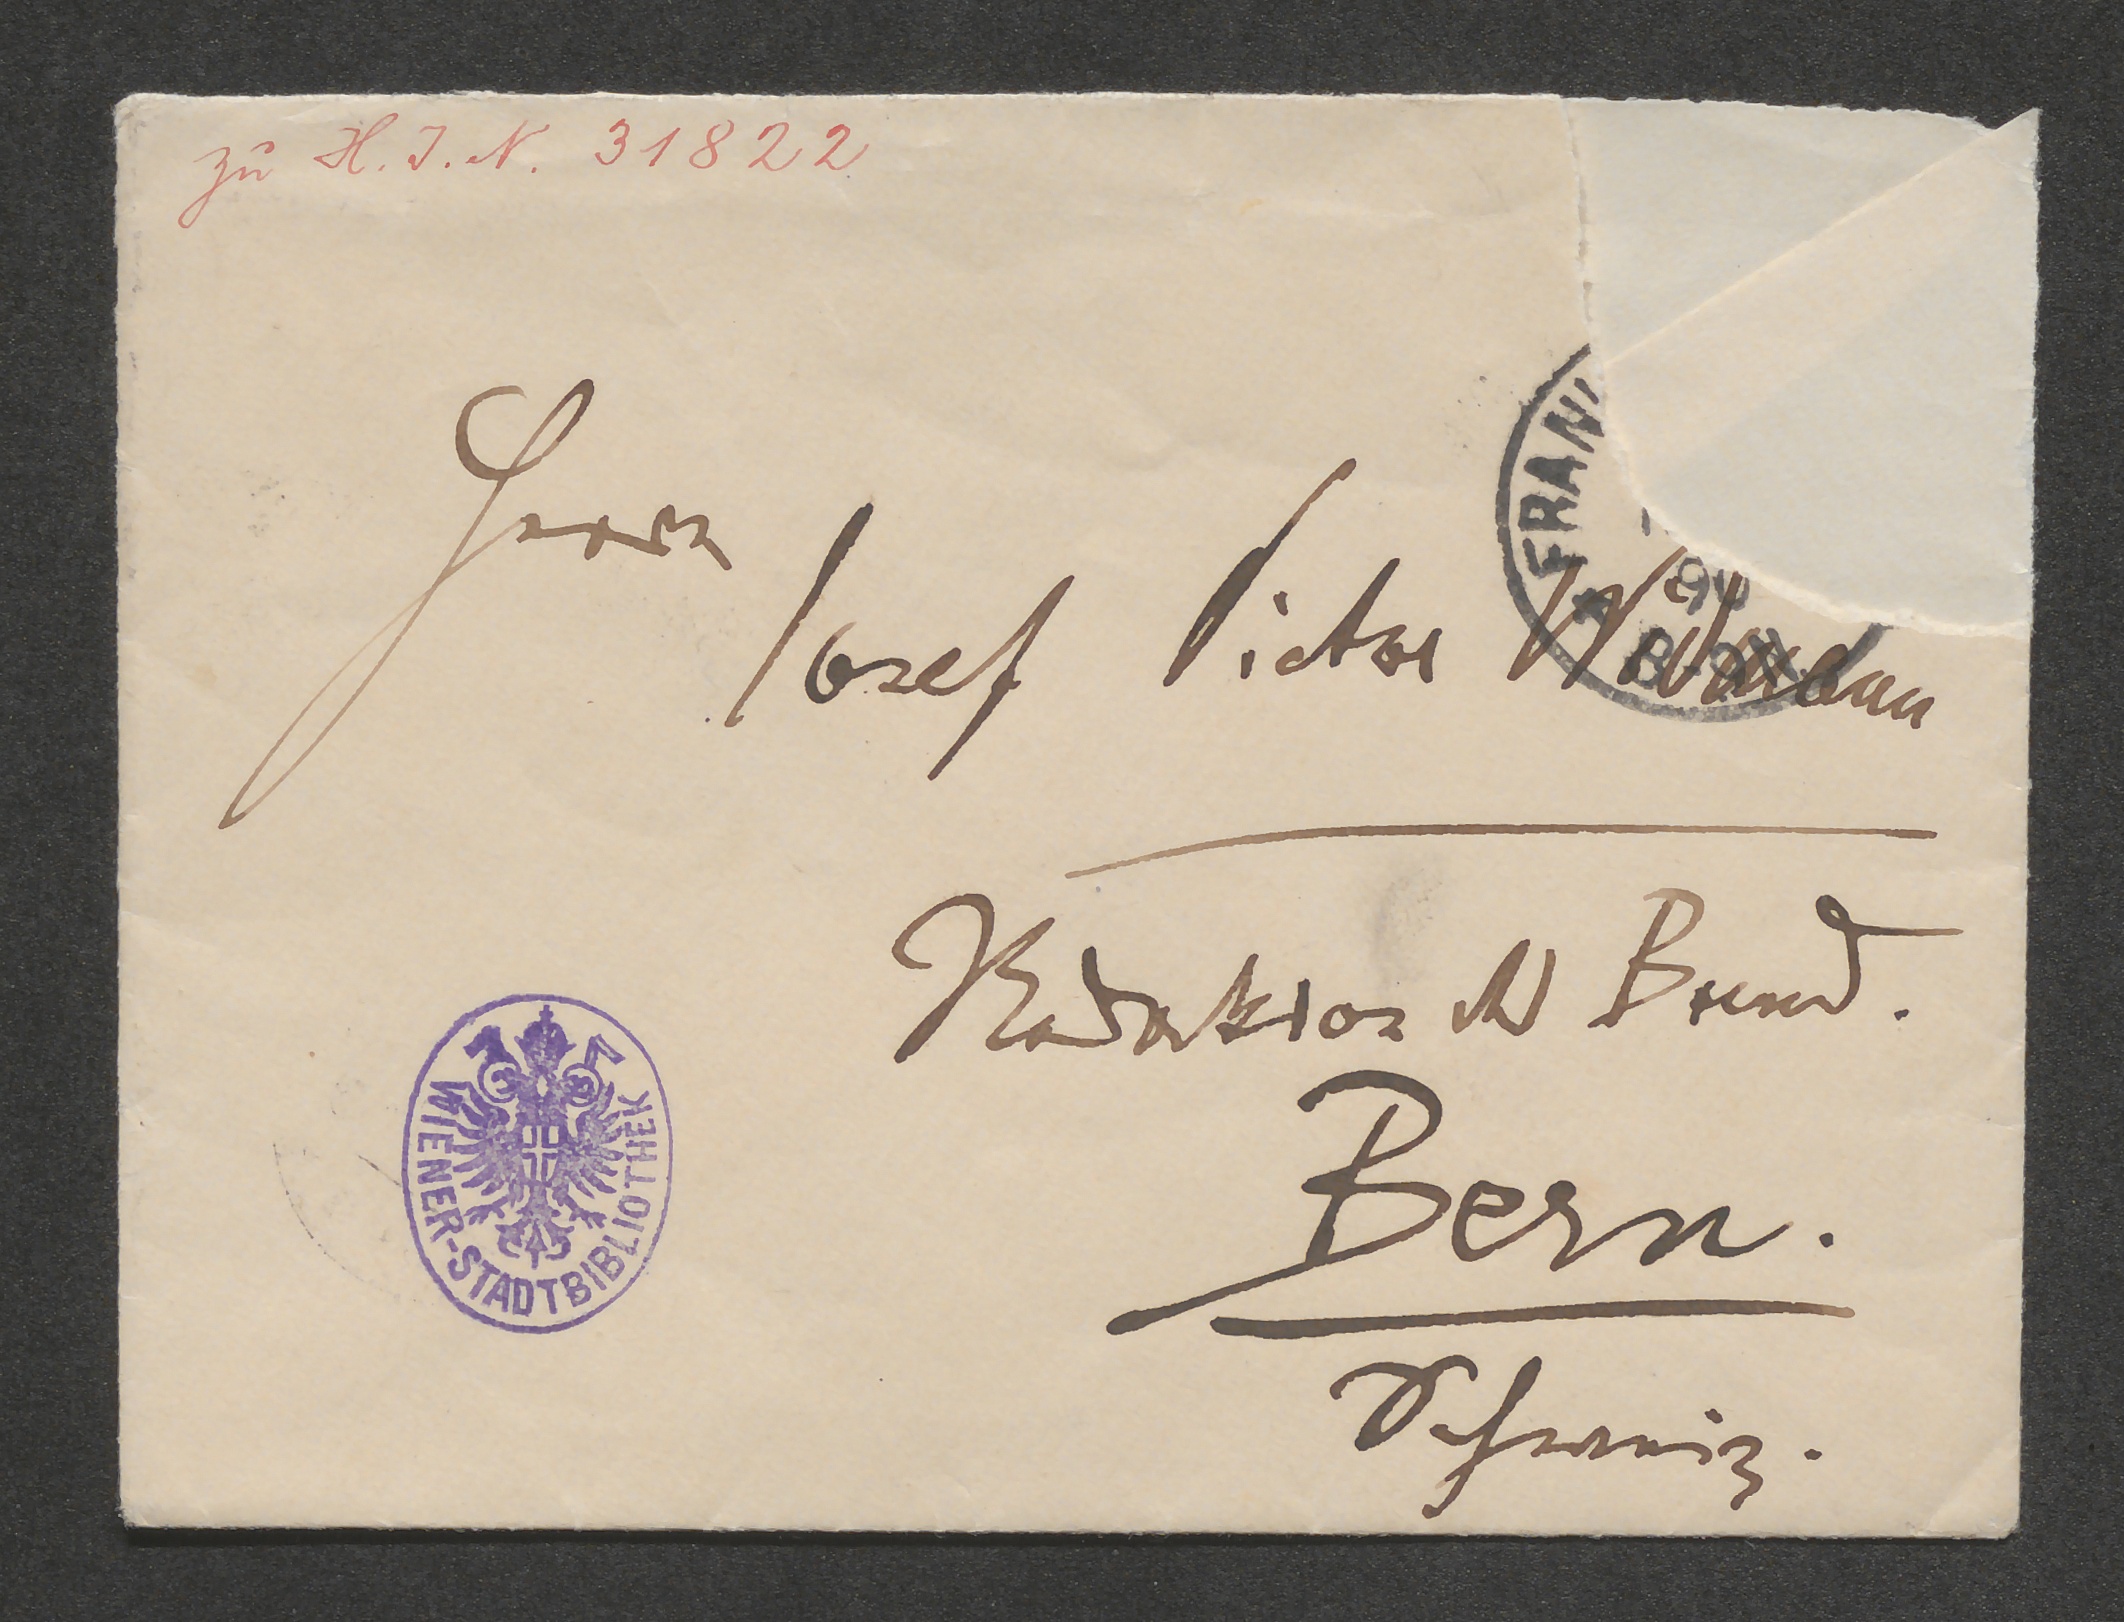 zu H. I. N. 31822
FRAN
Herrn
Josef Victor Widmann
Redaktion des Bund.
Bern.
Schweiz.
WIENER-STADTBIBLIOTHEK